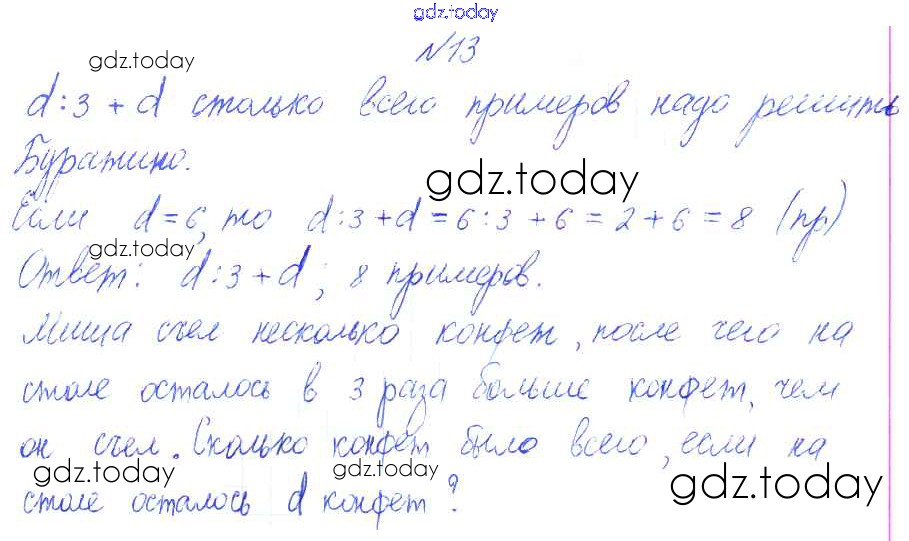 gdz.today
gdz.today
№13
d:3 + d столько всего примеров надо решить
Буратино.
gdz.today
Если d=6, то d:3+d=6:3+6=2+6=8 (пр)
gdz.today
Ответ: d:3+d; 8 примеров.
Миша съел несколько конфет, после чего на
столе осталось в 3 раза больше конфет, чем
он съел. Сколько конфет было всего, если на
gdz.today gdz.today gdz.today
столе осталось d конфет?